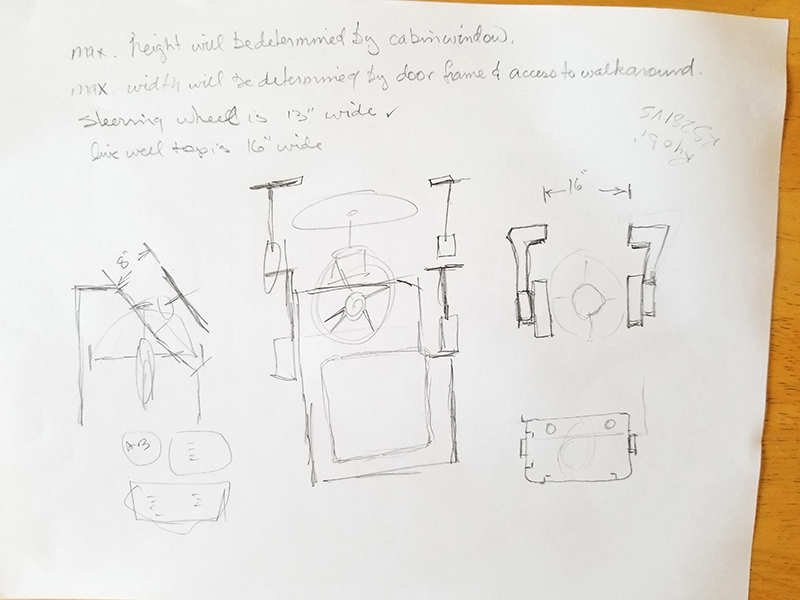 max. height will be determined by cabin window.
max. width will be determined by door frame & access to walkaround.
Steering wheel is 13" wide ✓
live well top is 16" wide
Ryobi
RS281VS
16"
8"
A-B